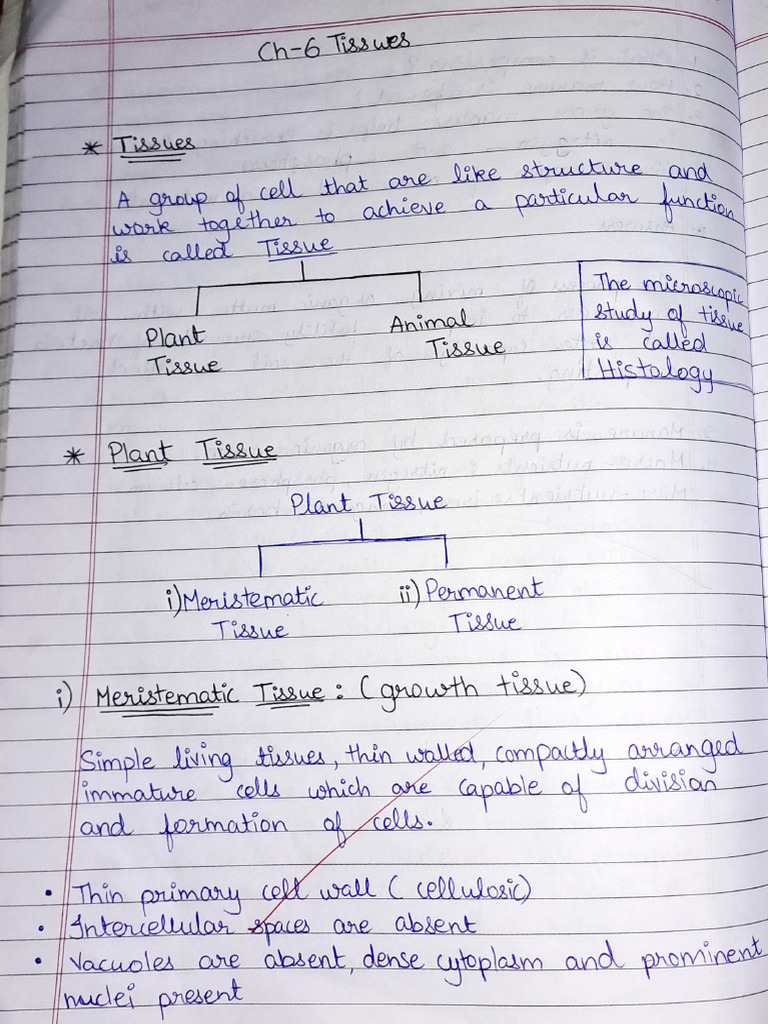 Ch-6 Tissues
* Tissues
A group of cell that are like structure and
work together to achieve a particular function
is called Tissue
Plant
Tissue
Animal
Tissue
The microscopic
study of tissue
is called
Histology
* Plant Tissue
Plant Tissue
i) Meristematic
Tissue
ii) Permanent
Tissue
i) Meristematic Tissue : (growth tissue)
Simple living tissues, thin walled, compactly arranged
immature cells which are capable of divisian
and formation of cells.
• Thin primary cell wall ( cellulosic)
• Intercellular spaces are absent
• Vacuoles are absent, dense cytoplasm and prominent
nuclei present